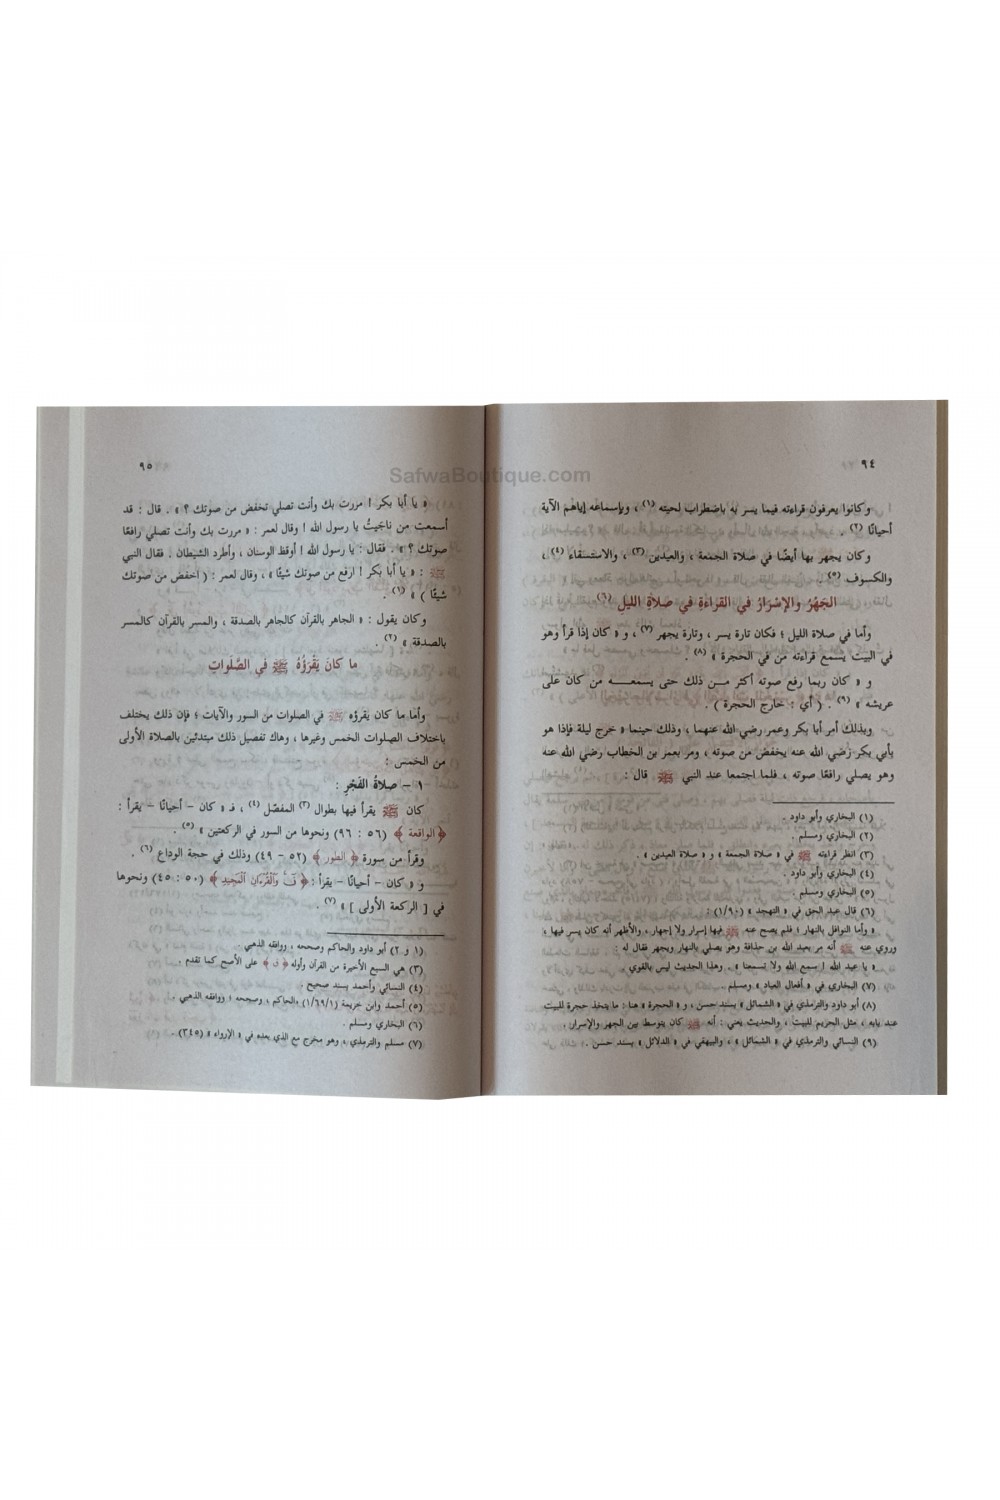 SafwaBoutique.com
٩٤
وكانوا يعرفون قراءته فيما يسر به باضطراب لحيته (١) ، وبإسماعه إياهم الآية
أحيانًا (٢) .
وكان يجهر بها أيضًا في صلاة الجمعة ، والعيدين (٣) ، والاستسقاء (٤) ،
والكسوف (٥) .
الجَهْرُ والإسْرَارُ في القراءةِ في صلاةِ الليلِ (٦)
وأما في صلاة الليل ؛ فكان تارة يسر ، وتارة يجهر (٧) ، و « كان إذا قرأ وهو
في البيت يسمع قراءته من في الحجرة » (٨) .
و « كان ربما رفع صوته أكثر مـن ذلك حتى يسمعـه من كان على
عريشه » (٩) . ( أي : خارج الحجرة ) .
وبذلك أمر أبا بكر وعمر رضي الله عنهما ، وذلك حينما « خرج ليلة فإذا هو
بأبي بكر رضي الله عنه يخفض من صوته ، ومر بعمر بن الخطاب رضي الله عنه
وهو يصلي رافعًا صوته ، فلما اجتمعا عند النبي ﷺ قال :
(١) البخاري وأبو داود .
(٢) البخاري ومسلم .
(٣) انظر قراءته ﷺ في « صلاة الجمعة » و « صلاة العيدين » .
(٤) البخاري وأبو داود .
(٥) البخاري ومسلم .
(٦) قال عبد الحق في « التهجد » (١/٩٠) :
« وأما النوافل بالنهار ؛ فلم يصح عنه ﷺ فيها إسرار ولا إجهار ، والأظهر أنه كان يسر فيها ؛
وروي عنه ﷺ أنه مر بعبد الله بن حذافة وهو يصلي بالنهار ويجهر فقال له :
« يا عبد الله ! سمع الله ولا تسمعنا » . وهذا الحديث ليس بالقوي .
(٧) البخاري في « أفعال العباد » ومسلم .
(٨) أبو داود والترمذي في « الشمائل » بسند حسن ، و « الحجرة » هنا : ما يتخذ حجرة للبيت
عند بابه ، مثل الحريم للبيت ، والحديث يعني : أنه ﷺ كان يتوسط بين الجهر والإسرار .
(٩) النسائي والترمذي في « الشمائل » ، والبيهقي في « الدلائل » بسند حسن .
٩٥
« يا أبا بكر ! مررت بك وأنت تصلي تخفض من صوتك ؟ » . قال : قد
أسمعت من ناجَيتُ يا رسول الله ! وقال لعمر : « مررت بك وأنت تصلي رافعًا
صوتك ؟ » . فقال : يا رسول الله ! أوقظ الوسنان ، وأطرد الشيطان . فقال النبي
ﷺ : « يا أبا بكر ! ارفع من صوتك شيئًا » ، وقال لعمر : ( اخفض من صوتك
شيئًا ) » (١) .
وكان يقول : « الجاهر بالقرآن كالجاهر بالصدقة ، والمسر بالقرآن كالمسر
بالصدقة » (٢) .
ما كانَ يَقْرَؤُهُ ﷺ في الصَّلَواتِ
وأما ما كان يقرؤه ﷺ في الصلوات من السور والآيات ؛ فإن ذلك يختلف
باختلاف الصلوات الخمس وغيرها ، وهاك تفصيل ذلك مبتدئين بالصلاة الأولى
من الخمس :
١ – صلاةُ الفَجْرِ :
كان ﷺ يقرأ فيها بطوال (٣) المفصّل (٤) ، فـ « كان – أحيانًا – يقرأ :
﴿ الواقعة ﴾ (٥٦ : ٩٦) ونحوها من السور في الركعتين » (٥) .
وقرأ من سورة ﴿ الطور ﴾ (٥٢ – ٤٩) وذلك في حجة الوداع (٦) .
و « كان – أحيانًا – يقرأ : ﴿ قٓ وَالْقُرْءَانِ الْمَجِيدِ ﴾ (٥٠ : ٤٥) ونحوها
في [ الركعة الأولى ] » (٧) .
(١ و ٢) أبو داود والحاكم وصححه ، ووافقه الذهبي .
(٣) هي السبع الأخيرة من القرآن وأوله ﴿ ق ﴾ على الأصح كما تقدم .
(٤) النسائي وأحمد بسند صحيح .
(٥) أحمد وابن خزيمة (١/٦٩/١) والحاكم ، وصححه ؛ ووافقه الذهبي .
(٦) البخاري ومسلم .
(٧) مسلم والترمذي ، وهو مخرج مع الذي بعده في « الإرواء » (٣٤٥) .